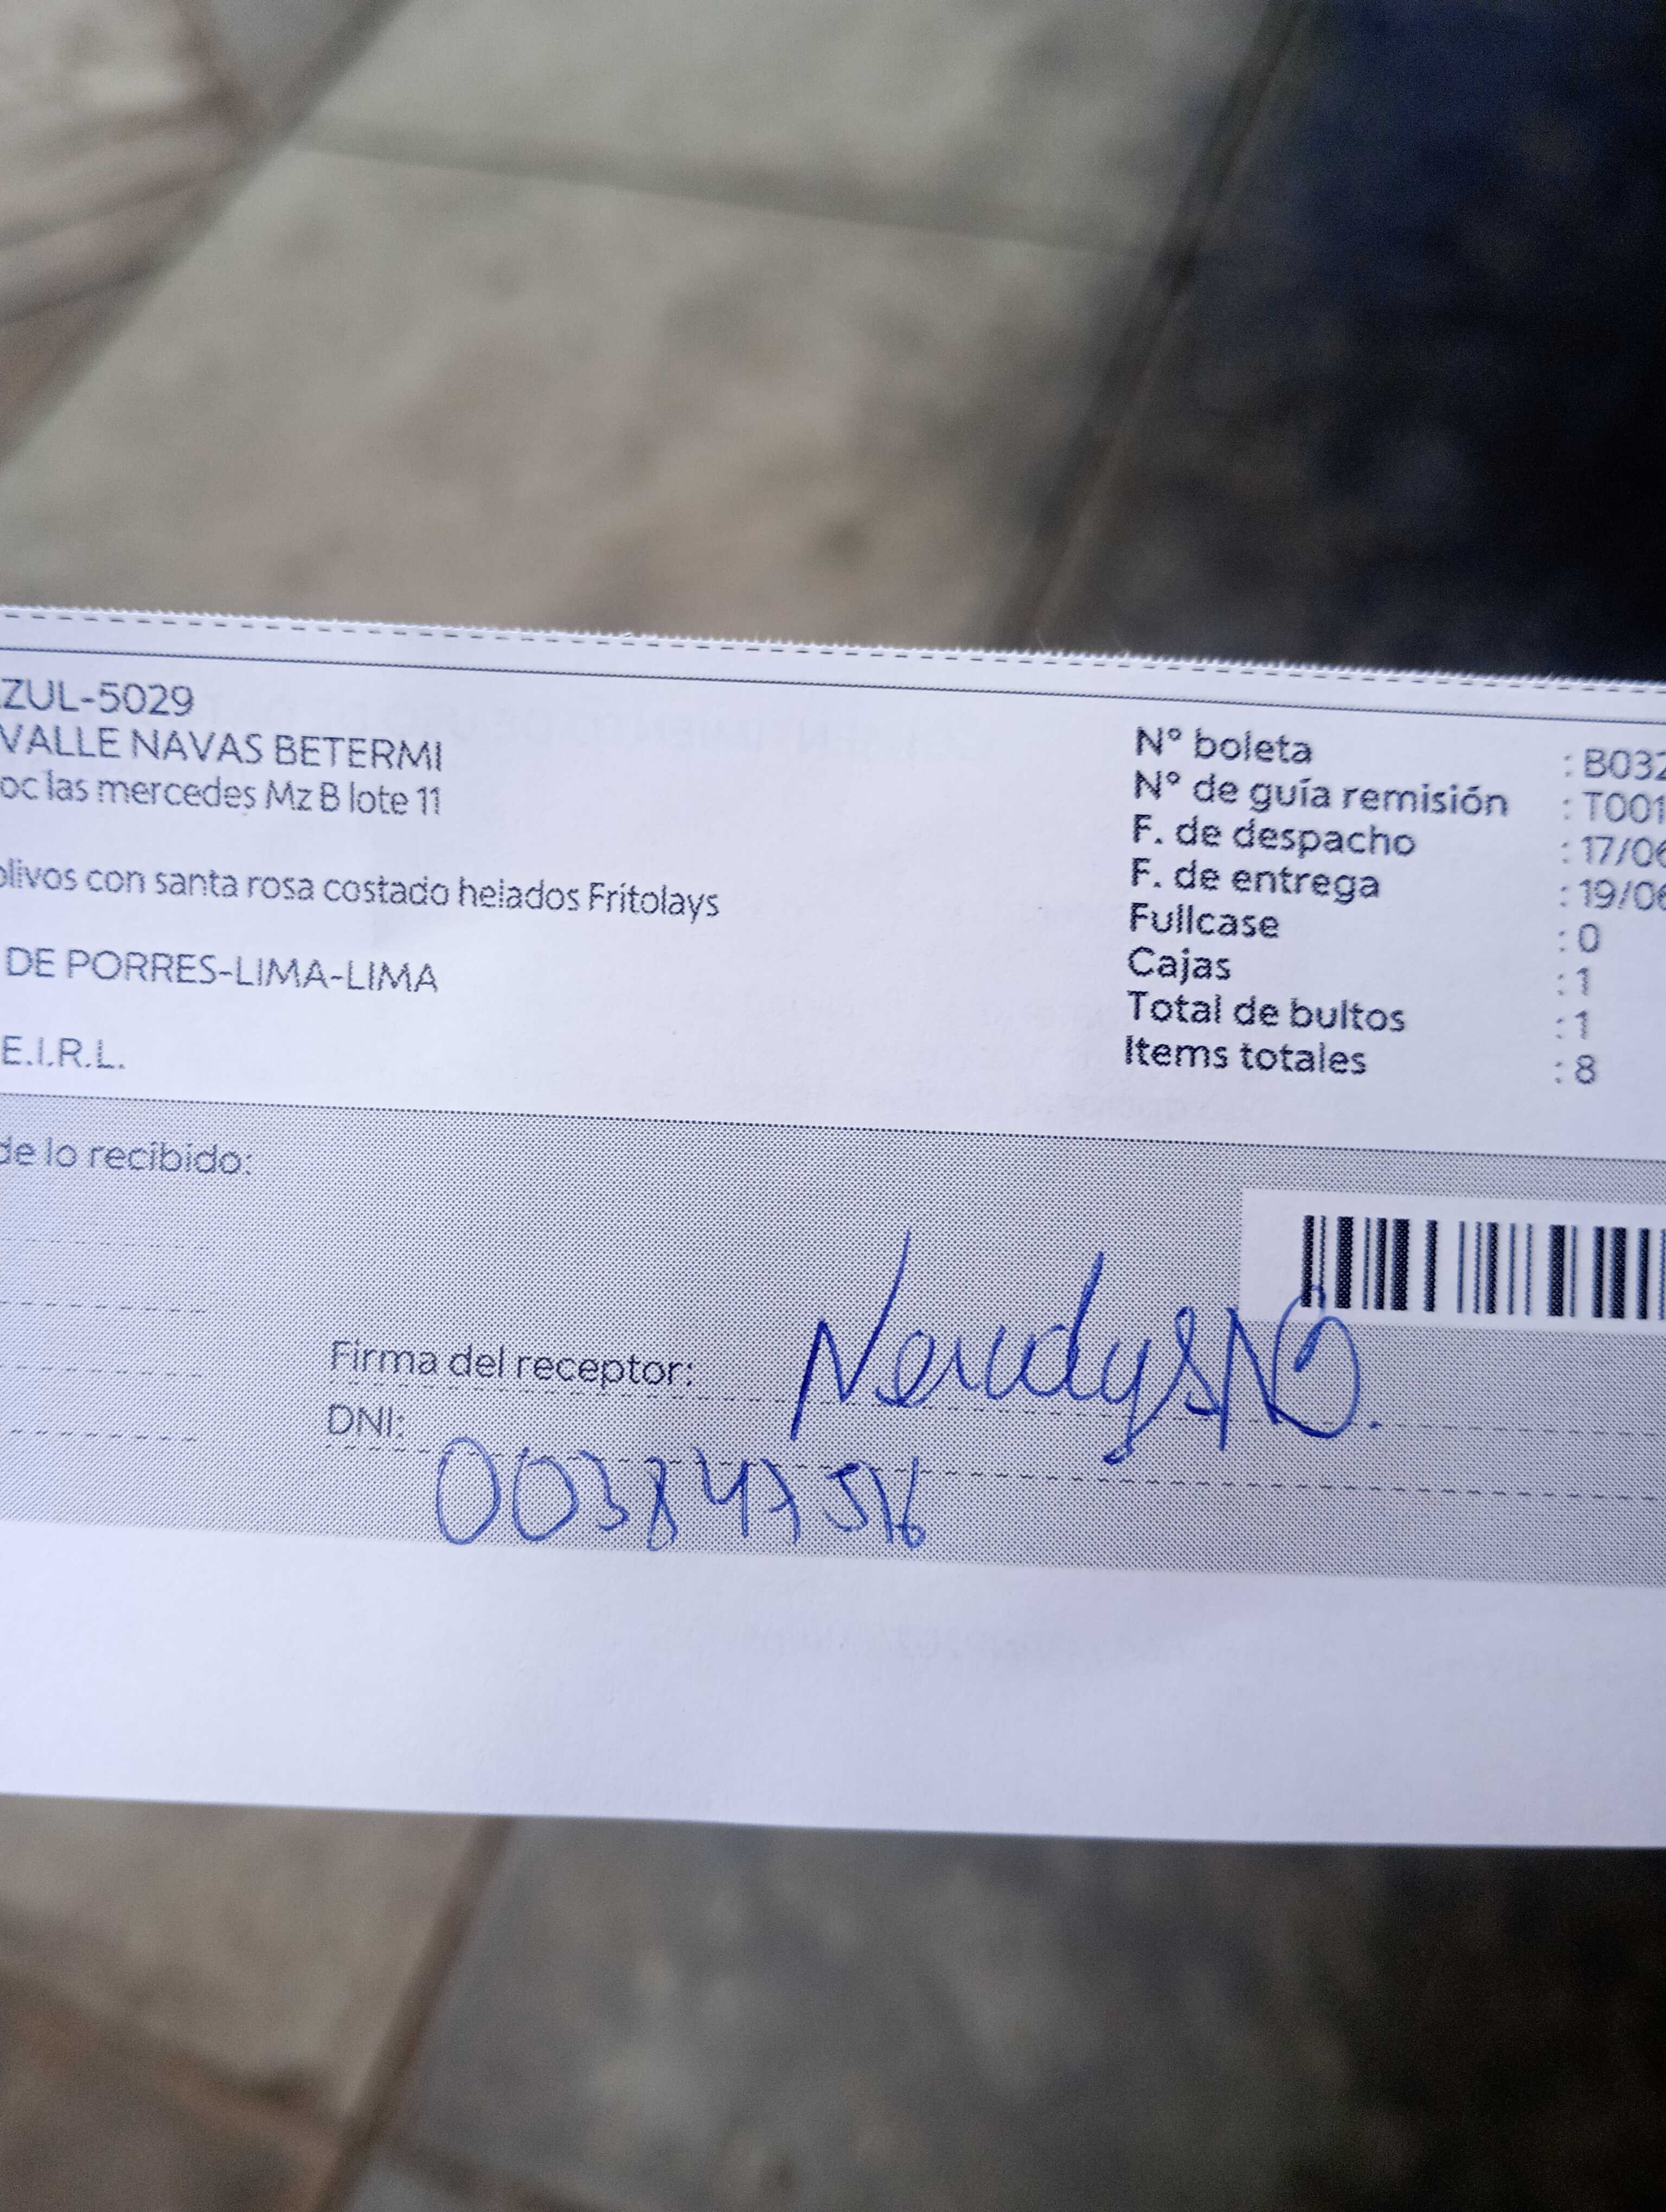 ZUL-5029
VALLE NAVAS BETERMI
oc las mercedes Mz B lote 11
olivos con santa rosa costado helados Fritolays
DE PORRES-LIMA-LIMA
E.I.R.L.
N° boleta : B032
N° de guía remisión : T001
F. de despacho : 17/06
F. de entrega : 19/06
Fullcase : 0
Cajas : 1
Total de bultos : 1
Items totales : 8
de lo recibido:
Firma del receptor:
DNI: 003847516